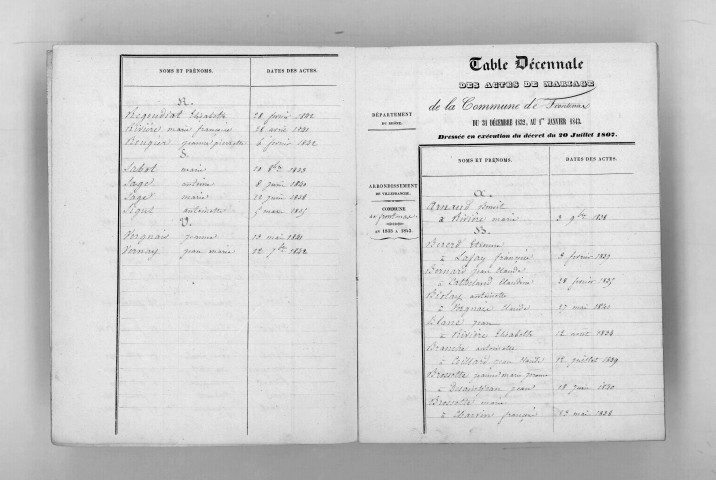 NOMS ET PRÉNOMS. DATES DES ACTES.
R.
Elisabeth 28 février 1842
Rivière marie françoise 18 avril 1841
6 février 1842
S.
Sabot marie 10 8bre 1833
Sage antoine 8 juin 1840
Sage marie 22 juin 1838
antoinette 1837
V.
Verguais jeanne 19 mai 1841
Vernay jean marie 12 7bre 1842
Table Décennale
DES ACTES DE MARIAGE
de la Commune de Frontenas
DU 31 DÉCEMBRE 1832, AU 1er JANVIER 1843.
Dressée en exécution du décret du 20 Juillet 1807.
DÉPARTEMENT
DU RHÔNE.
ARRONDISSEMENT
DE VILLEFRANCHE.
COMMUNE
de frontenas
de 1833 à 1843.
NOMS ET PRÉNOMS. DATES DES ACTES.
A.
Arnaud benoit
à Rivière marie 3 9bre 1838
B.
Berod Etienne
à Lafay françoise 3 février 1837
Bernard jean claude
à Claudine 28 février 1835
Biolay antoinette
à claude 27 mai 1840
Blanc jean
à Rivière Elisabeth 12 aout 1834
Branche antoinette
à jean claude 12 juillet 1839
Brossette jeanne marie
à jean 18 juin 1840
Brossette marie
à françois 23 mai 1838